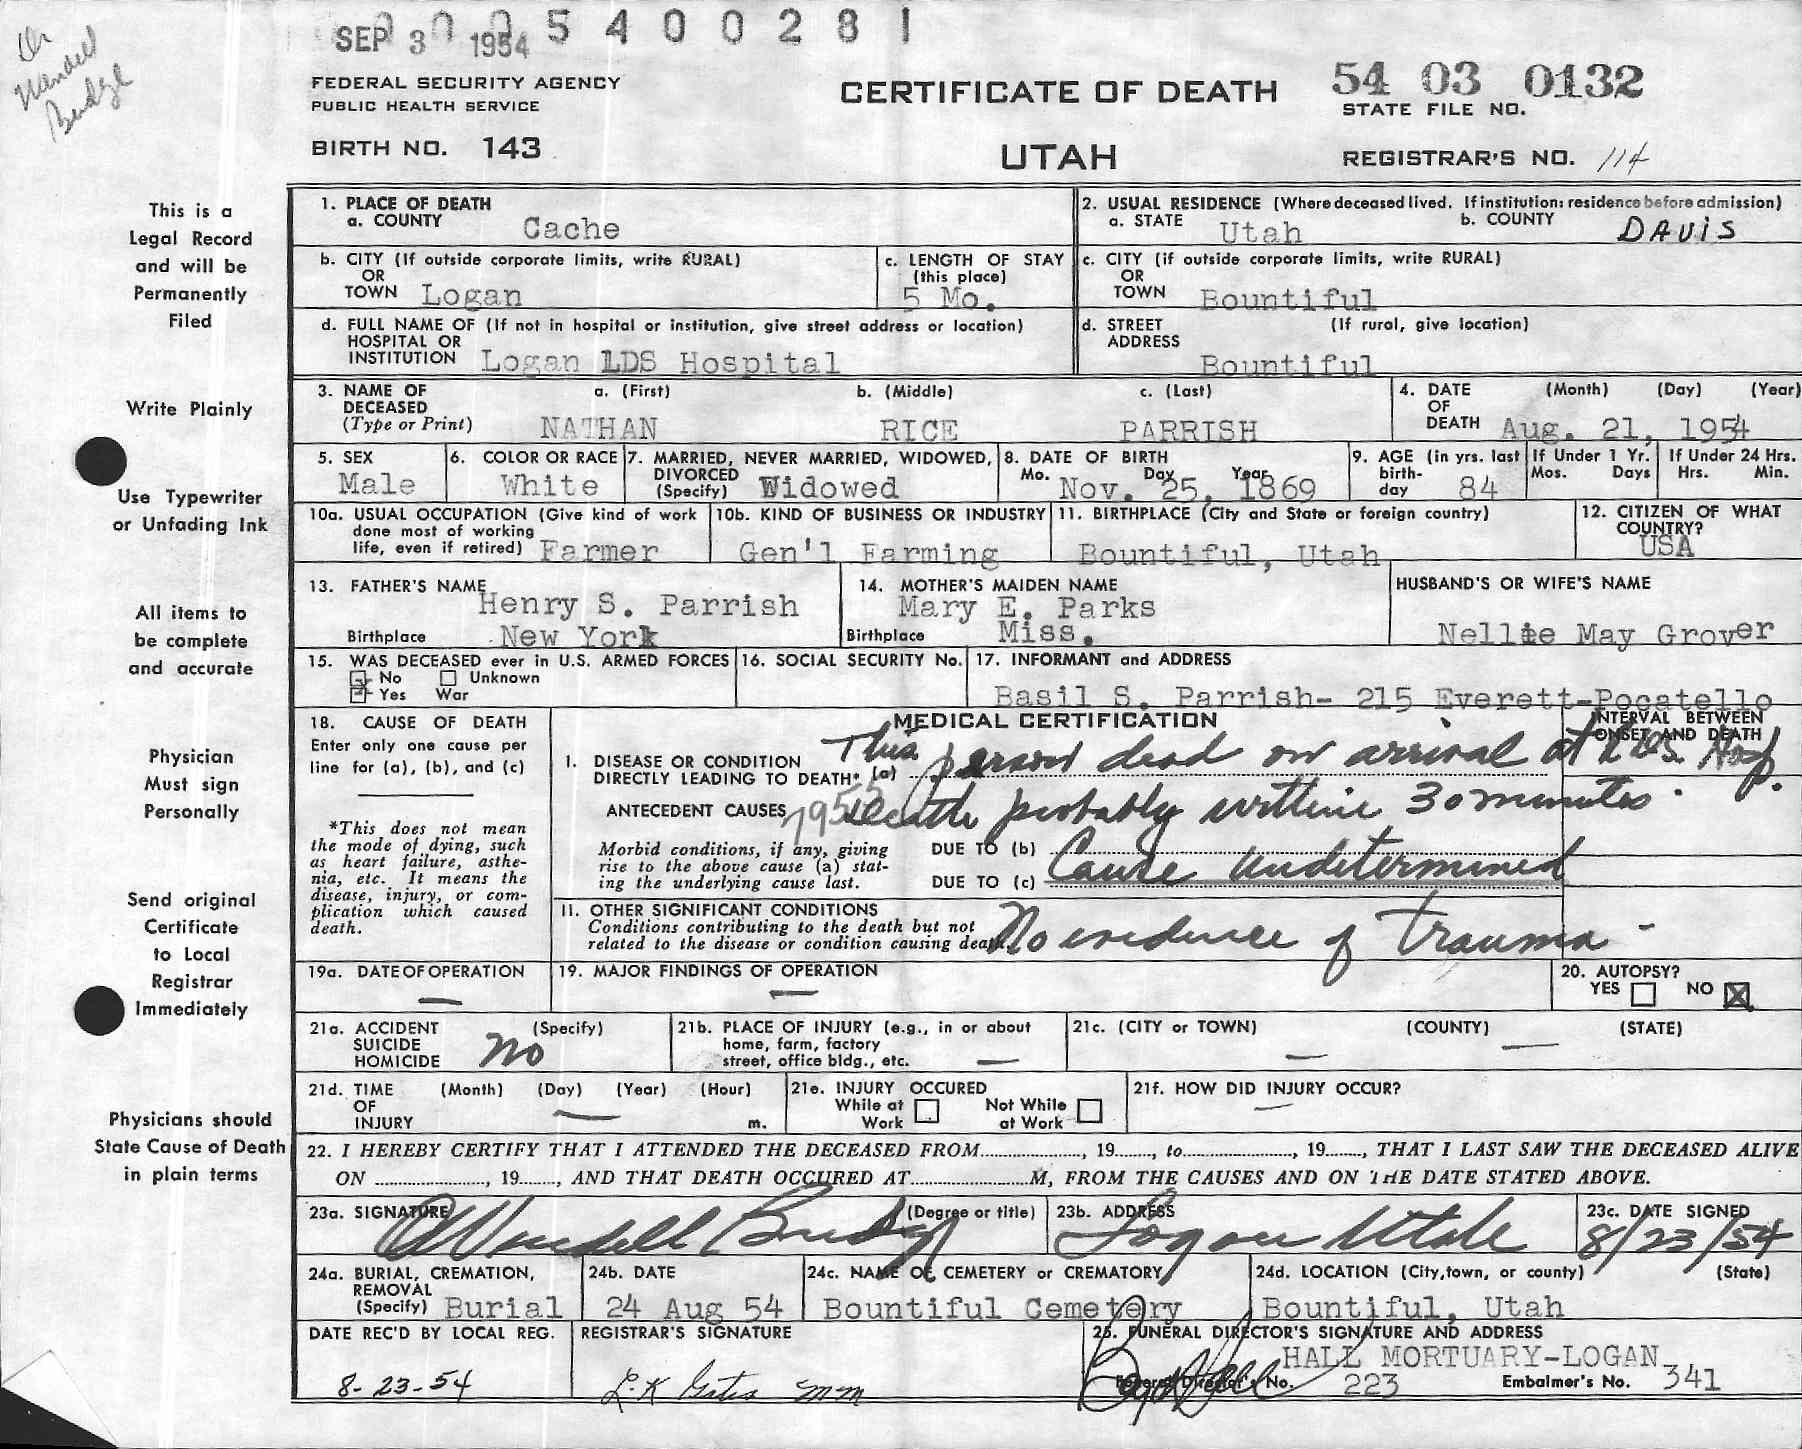 Dr
Wendell
Budge
SEP 30 1954
0 0 5 4 0 0 2 8 1
FEDERAL SECURITY AGENCY
PUBLIC HEALTH SERVICE
BIRTH NO. 143
CERTIFICATE OF DEATH
UTAH
54 03 0132
STATE FILE NO.
REGISTRAR'S NO. 114
This is a
Legal Record
and will be
Permanently
Filed
Write Plainly
Use Typewriter
or Unfading Ink
All items to
be complete
and accurate
Physician
Must sign
Personally
Send original
Certificate
to Local
Registrar
Immediately
Physicians should
State Cause of Death
in plain terms
1. PLACE OF DEATH
a. COUNTY Cache
2. USUAL RESIDENCE (Where deceased lived. If institution: residence before admission)
a. STATE Utah b. COUNTY DAVIS
b. CITY (If outside corporate limits, write RURAL)
OR
TOWN Logan
c. LENGTH OF STAY
(this place)
5 Mo.
c. CITY (if outside corporate limits, write RURAL)
OR
TOWN Bountiful
d. FULL NAME OF (If not in hospital or institution, give street address or location)
HOSPITAL OR
INSTITUTION Logan LDS Hospital
d. STREET (If rural, give location)
ADDRESS
Bountiful
3. NAME OF DECEASED (Type or Print)
a. (First) b. (Middle) c. (Last)
NATHAN RICE PARRISH
4. DATE OF DEATH (Month) (Day) (Year)
Aug. 21, 1954
5. SEX
Male
6. COLOR OR RACE
White
7. MARRIED, NEVER MARRIED, WIDOWED,
DIVORCED
(Specify) Widowed
8. DATE OF BIRTH
Mo. Day Year
Nov. 25, 1869
9. AGE (in yrs. last
birth-
day 84
If Under 1 Yr.
Mos. Days
If Under 24 Hrs.
Hrs. Min.
10a. USUAL OCCUPATION (Give kind of work
done most of working
life, even if retired) Farmer
10b. KIND OF BUSINESS OR INDUSTRY
Gen'l Farming
11. BIRTHPLACE (City and State or foreign country)
Bountiful, Utah
12. CITIZEN OF WHAT
COUNTRY?
USA
13. FATHER'S NAME
Henry S. Parrish
Birthplace New York
14. MOTHER'S MAIDEN NAME
Mary E. Parks
Birthplace Miss.
HUSBAND'S OR WIFE'S NAME
Nellie May Grover
15. WAS DECEASED ever in U.S. ARMED FORCES
No Unknown
Yes War
16. SOCIAL SECURITY No.
17. INFORMANT and ADDRESS
Basil S. Parrish- 215 Everett-Pocatello
18. CAUSE OF DEATH
Enter only one cause per
line for (a), (b), and (c)
*This does not mean
the mode of dying, such
as heart failure, asthe-
nia, etc. It means the
disease, injury, or com-
plication which caused
death.
MEDICAL CERTIFICATION
INTERVAL BETWEEN
ONSET AND DEATH
I. DISEASE OR CONDITION
DIRECTLY LEADING TO DEATH* (a) This person dead on arrival at LDS Hosp.
ANTECEDENT CAUSES 7955 Death probably within 30 minutes.
Morbid conditions, if any, giving
rise to the above cause (a) stat-
ing the underlying cause last.
DUE TO (b)
DUE TO (c) Cause undetermined
II. OTHER SIGNIFICANT CONDITIONS
Conditions contributing to the death but not
related to the disease or condition causing death. No evidence of trauma -
19a. DATE OF OPERATION
—
19. MAJOR FINDINGS OF OPERATION
—
20. AUTOPSY?
YES NO X
21a. ACCIDENT (Specify)
SUICIDE
HOMICIDE No
21b. PLACE OF INJURY (e.g., in or about
home, farm, factory
street, office bldg., etc. —
21c. (CITY or TOWN) (COUNTY) (STATE)
— —
21d. TIME (Month) (Day) (Year) (Hour)
OF —
INJURY m.
21e. INJURY OCCURED
While at Work Not While at Work
21f. HOW DID INJURY OCCUR?
—
22. I HEREBY CERTIFY THAT I ATTENDED THE DECEASED FROM..................., 19......., to....................., 19......., THAT I LAST SAW THE DECEASED ALIVE
ON ..................., 19......., AND THAT DEATH OCCURED AT.....................M, FROM THE CAUSES AND ON THE DATE STATED ABOVE.
23a. SIGNATURE (Degree or title)
O Wendell Budge
23b. ADDRESS
Logan Utah
23c. DATE SIGNED
8/23/54
24a. BURIAL, CREMATION,
REMOVAL
(Specify) Burial
24b. DATE
24 Aug 54
24c. NAME OF CEMETERY or CREMATORY
Bountiful Cemetery
24d. LOCATION (City, town, or county) (State)
Bountiful, Utah
DATE REC'D BY LOCAL REG.
8-23-54
REGISTRAR'S SIGNATURE
25. FUNERAL DIRECTOR'S SIGNATURE AND ADDRESS
HALL MORTUARY-LOGAN
Funeral Director's No. 223 Embalmer's No. 341